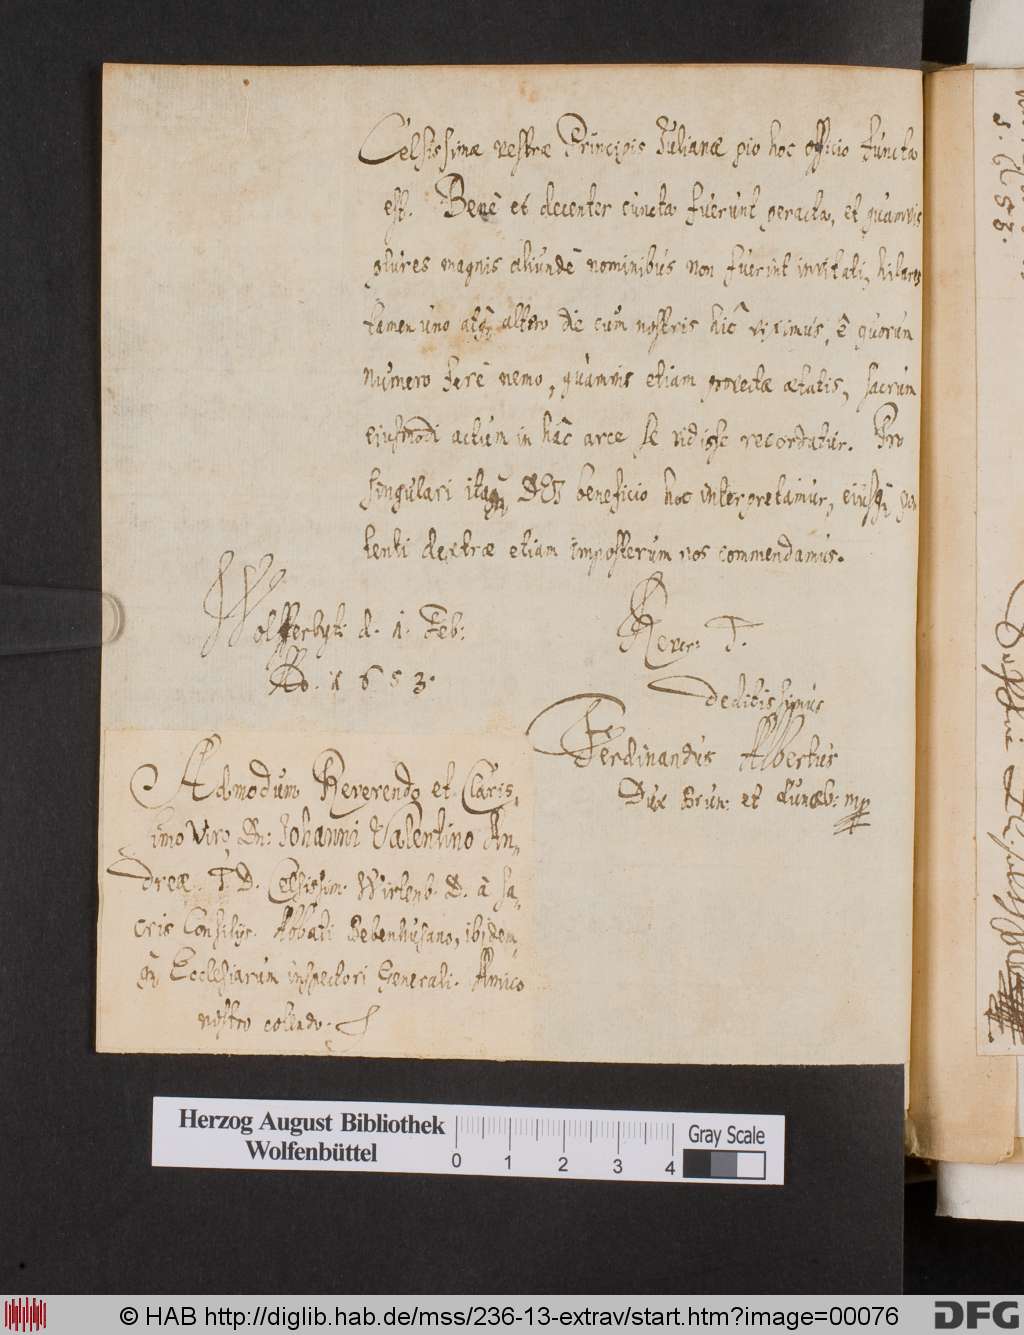 Celsissimæ vestræ Principis Julianæ pio hoc officio functa
est. Benè et decenter cuncta fuerunt peracta, et quamvis
plures magnis aliundè nominibus non fuerint invitati, hilares
tamen uno atq; altero die cum nostris hîc viximus, è quorum
numero ferè nemo, quamvis etiam provectæ ætatis, sacrum
eiusmodi actum in hâc arce se vidisse recordatur. Pro
singulari itaq; DEI beneficio hoc interpretamur, eiusq; po-
tenti dextræ etiam imposterum nos commendamus.
Wolfferbyt: d. 1. Feb:
Ao. 1653.
Rever: T.
deditissimus
Ferdinandus Albertus
Dux Brun: et Lunæb: mp
Admodum Reverendo et Claris,
simo Viro Dn: Johanni Valentino An,
dreæ. T. D. Celsissim: Wirtenb. D. â sa,
cris Consilijs. Abbati Bebenhusano, ibidem,
q; Ecclesiarum inspectori Generali. Amico
nostro colendo.
5. 1653.
Herzog August Bibliothek
Wolfenbüttel
0 1 2 3 4
Gray Scale
© HAB http://diglib.hab.de/mss/236-13-extrav/start.htm?image=00076
DFG